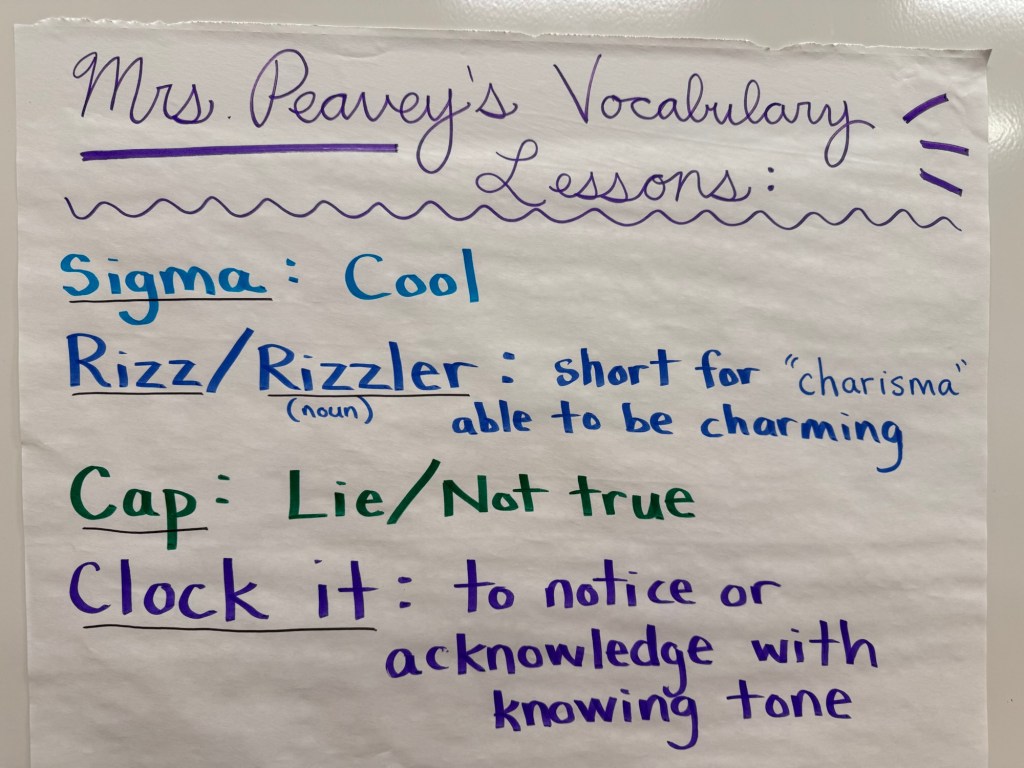 Mrs. Peavey's Vocabulary
Lessons:
Sigma: Cool
Rizz/Rizzler: short for "charisma"
(noun) able to be charming
Cap: Lie/Not true
Clock it: to notice or
acknowledge with
knowing tone